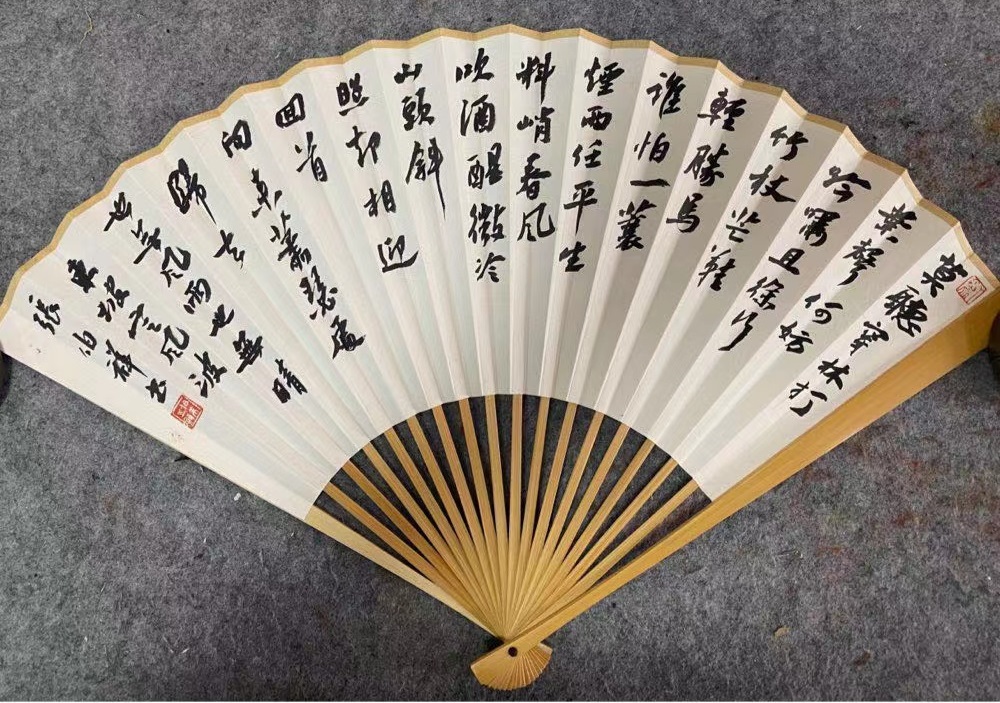 莫聽穿林打
葉聲何妨
吟嘯且徐行
竹杖芒鞋
輕勝馬
誰怕一蓑
煙雨任平生
料峭春风
吹酒醒微冷
山頭斜
照却相迎
回首
向来蕭瑟處
歸去
也無风雨也無晴
東坡定风波
張伯祥书